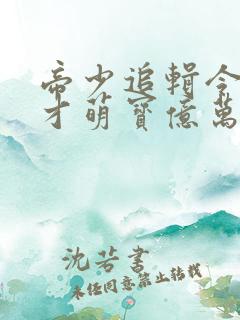 帝少追輯令
才萌寶億萬
沈若書
未经同意禁止转载